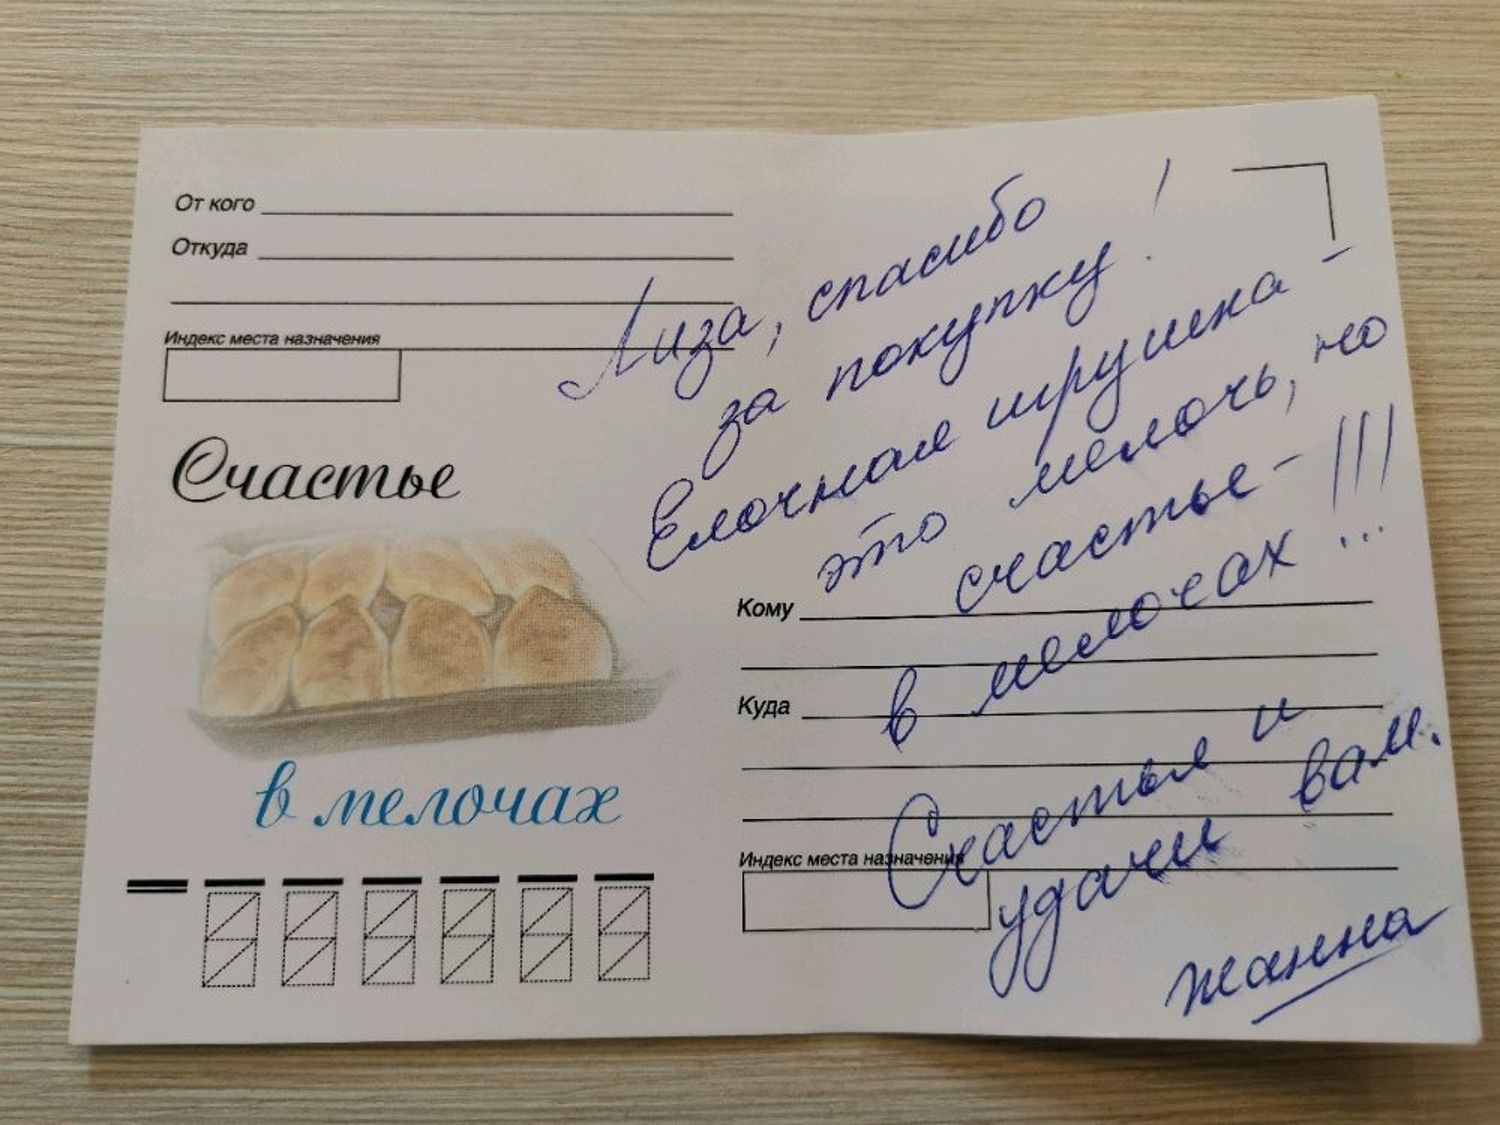 От кого
Откуда
Индекс места назначения
Счастье
в мелочах
Лиза, спасибо
за покупку!
Ёлочная игрушка -
это мелочь, но
счастье -
в мелочах...!!!
Счастья и
удачи вам.
Жанна
Кому
Куда
Индекс места назначения